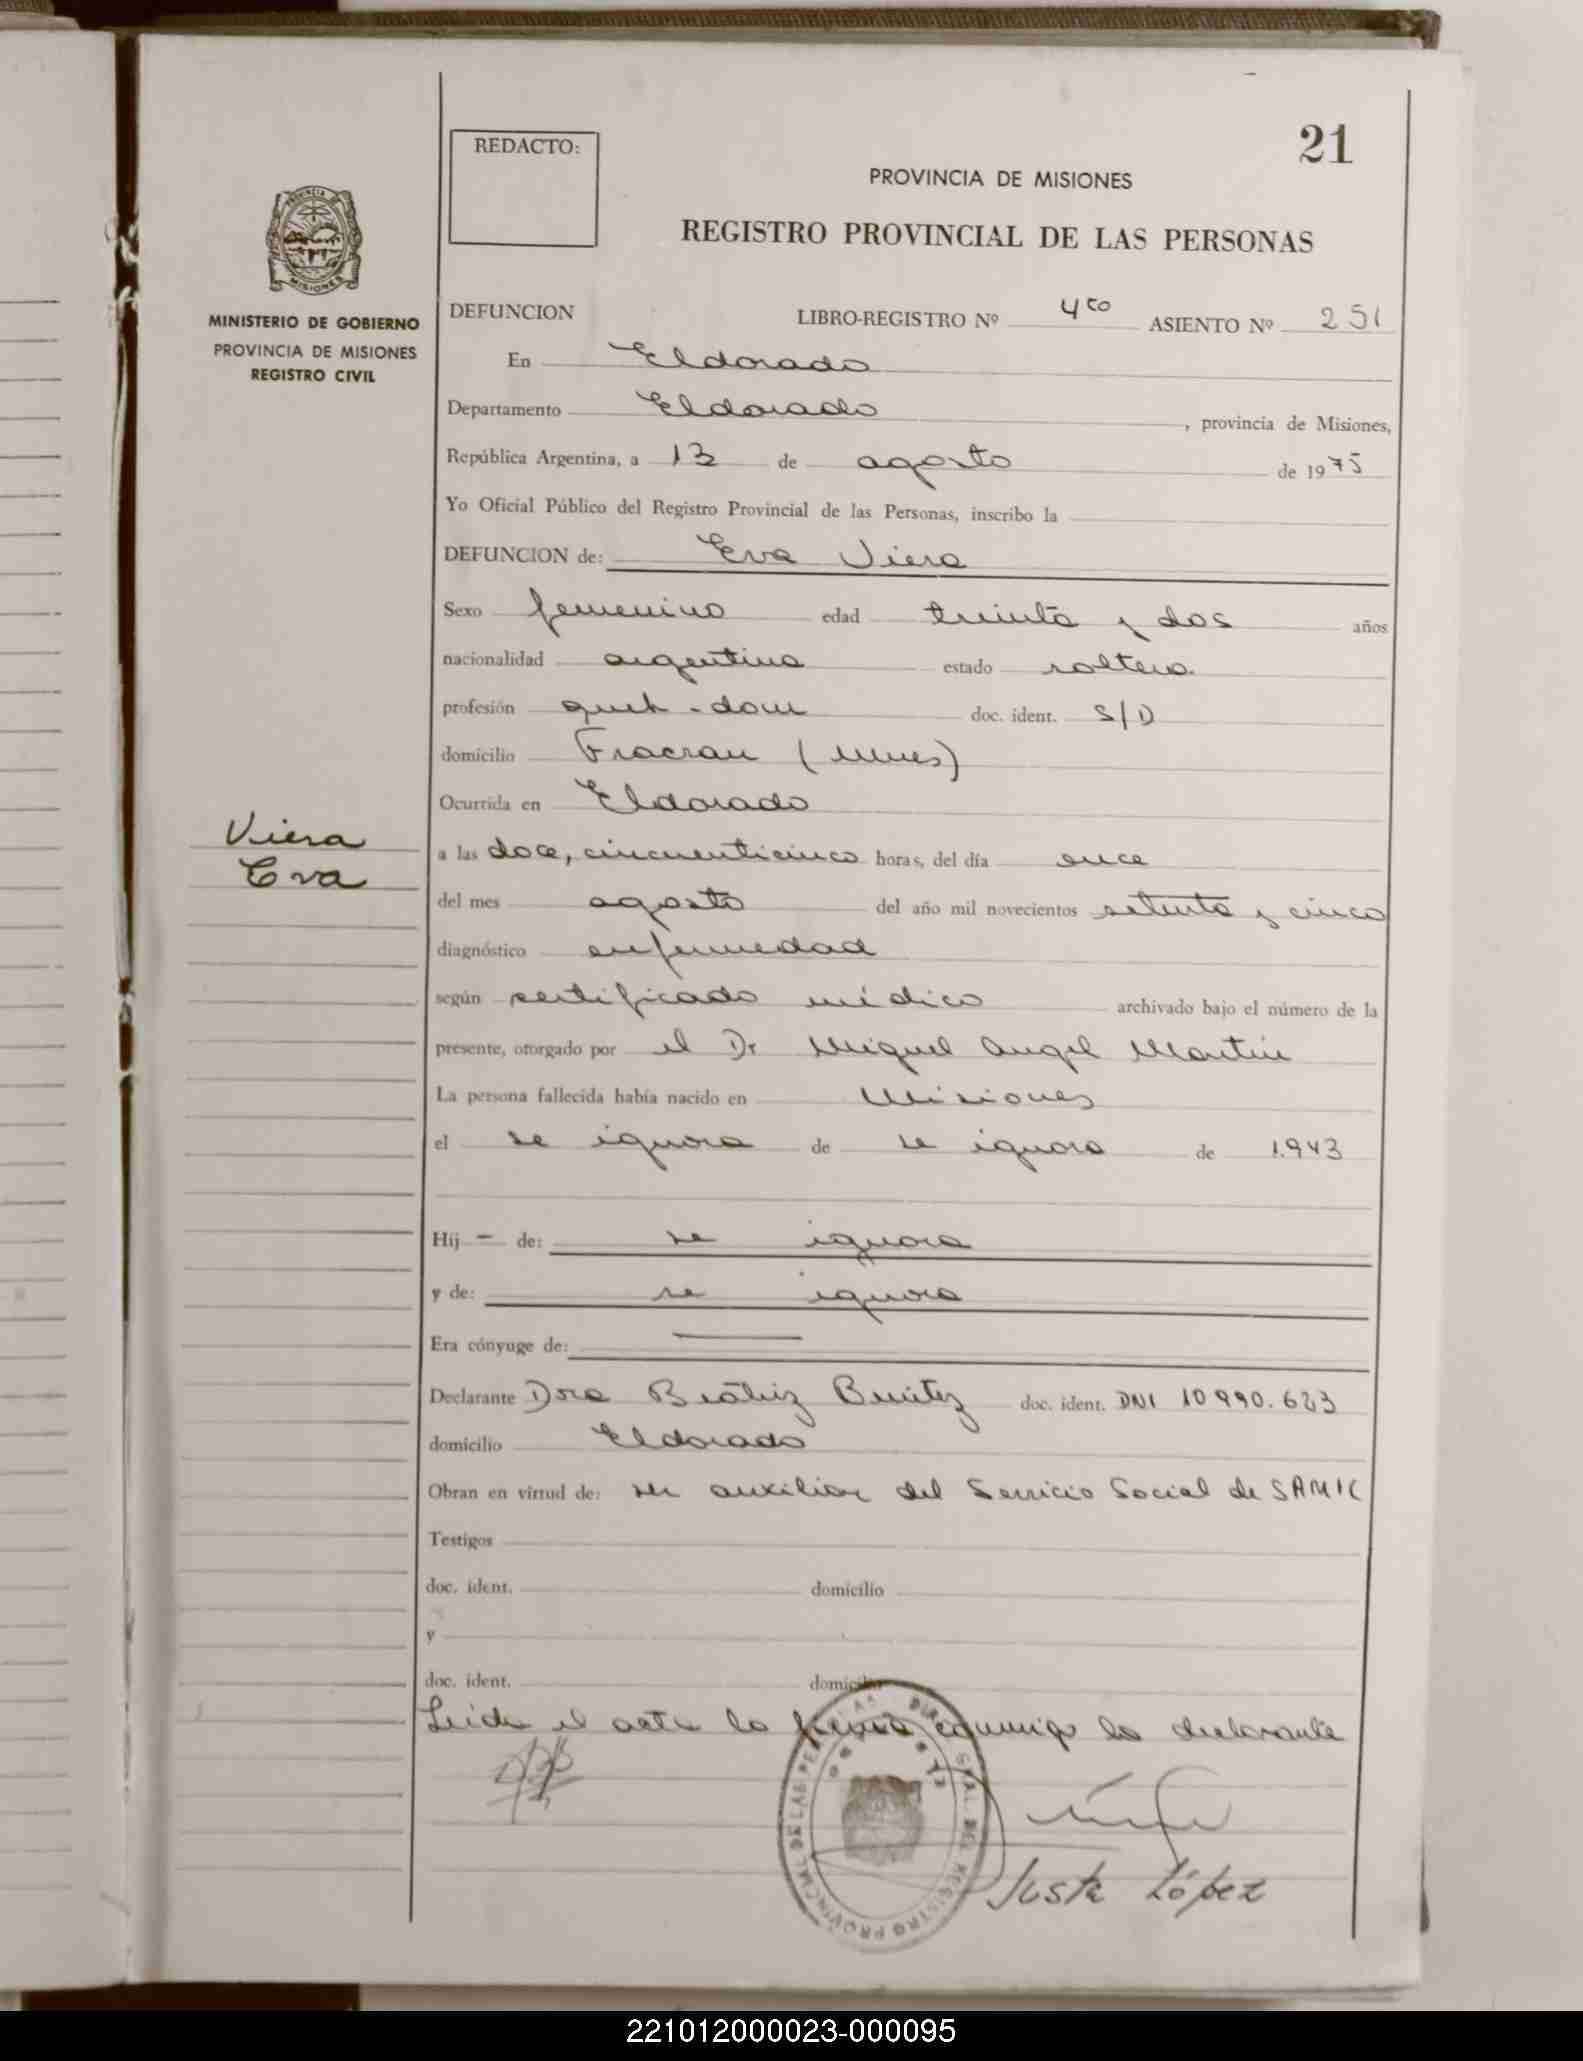 21
REDACTO:
PROVINCIA DE MISIONES
REGISTRO PROVINCIAL DE LAS PERSONAS
MISIONES
MINISTERIO DE GOBIERNO
PROVINCIA DE MISIONES
REGISTRO CIVIL
DEFUNCION LIBRO-REGISTRO Nº 4to ASIENTO Nº 251
En Eldorado
Departamento Eldorado, provincia de Misiones,
República Argentina, a 13 de agosto de 1975
Yo Oficial Público del Registro Provincial de las Personas, inscribo la
DEFUNCION de: Eva Viera
Sexo femenino edad treinta y dos años
nacionalidad argentina estado soltera.
profesión queh-dom doc. ident. S/D
domicilio Fracran (mnes)
Ocurrida en Eldorado
Viera
Eva
a las doce, cincuenticinco horas, del día once
del mes agosto del año mil novecientos setenta y cinco
diagnóstico enfermedad
según certificado médico archivado bajo el número de la
presente, otorgado por el Dr Miguel Angel Martin
La persona fallecida había nacido en Misiones
el se ignora de se ignora de 1.943
Hij - de: se ignora
y de: se ignora
Era cónyuge de:
Declarante Dora Beátriz Benítez doc. ident. DNI 10990.623
domicilio Eldorado
Obran en virtud de: ser auxiliar del Servicio Social de SAMIC
Testigos
doc. ident. domicilio
y
doc. ident. domicilio
Leida el acta la firma conmigo la declarante
Justa López
221012000023-000095